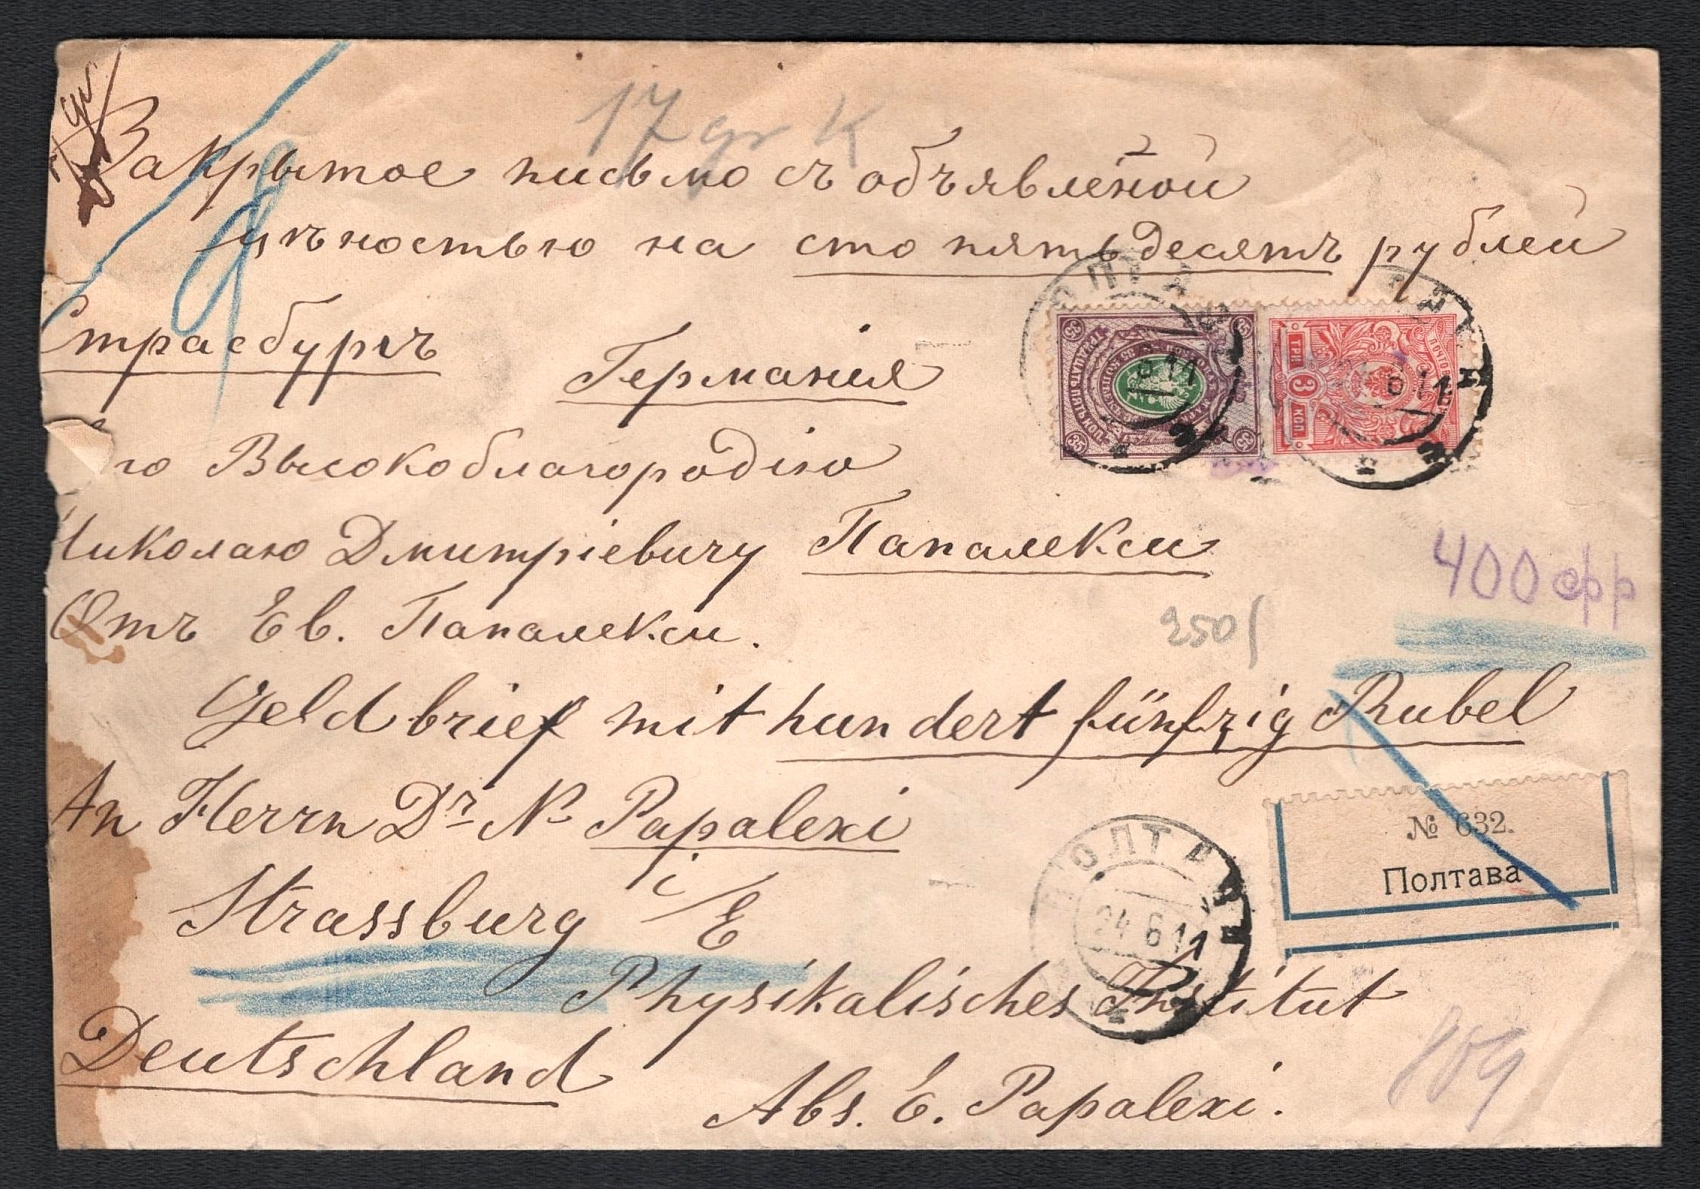 17 gr K
Закрытое письмо съ объявленой
цѣностью на сто пятьдесятъ рублей
Страсбургъ
Германія
го Высокоблагородію
Николаю Дмитріевичу Папалекси
Отъ Ев. Папалекси.
400 фр
250
Geldbrief mit hundert fünfzig Rubel
An Herrn Dr N. Papalexi
Strassburg i/E
Physikalisches Institut
Deutschland
Abs. E. Papalexi.
№ 632.
Полтава
ПОЛТАВА
24 6 11
35 35 35 35
ТРИ
3
КОП.
6 11
809